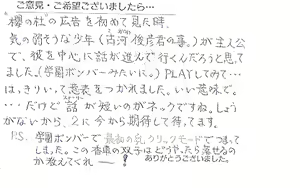 ご意見・ご希望ございましたら…
"櫻の杜"の広告を初めて見た時、
気の弱そうな少年(古河俊彦君の事。)が主人公
で、彼を中心に話が進んで行くんだろうと思って
ました。(学園ボンバーみたいに。)PLAYしてみて…
は、きりいって意表をつかれました。いい意味で。
…だけど話が短いのがネックですね。しょう
がないから、2に今から期待して待ってます。
P.S. 学園ボンバーで最初の乱クリックモードでつまって
しまった。この香車の双子はどうやったら落せるの
か教えてくれ――?
ありがとうございました。